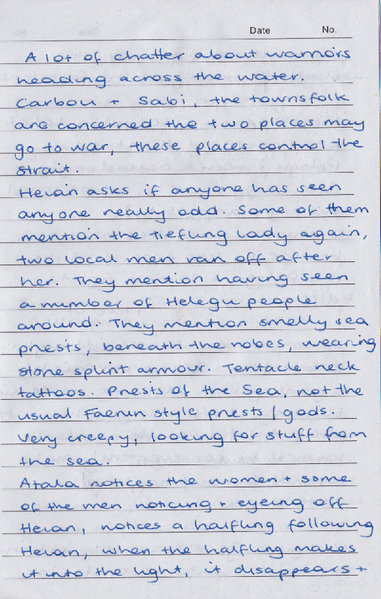 Date No.
A lot of chatter about warriors
heading across the water.
Carbou + Sabi, the townsfolk
are concerned the two places may
go to war, these places control the
strait.
Heian asks if anyone has seen
anyone really odd. Some of them
mention the tiefling lady again,
two local men ran off after
her. They mention having seen
a number of Helegu people
around. They mention smelly sea
priests, beneath the robes, wearing
stone splint armour. Tentacle neck
tattoos. Priests of the Sea, not the
usual Faerun style priests / gods.
Very creepy, looking for stuff from
the sea.
Atala notices the women + some
of the men noticing + eyeing off
Heian, notices a halfling following
Heian, when the halfling makes
it into the light, it disappears +